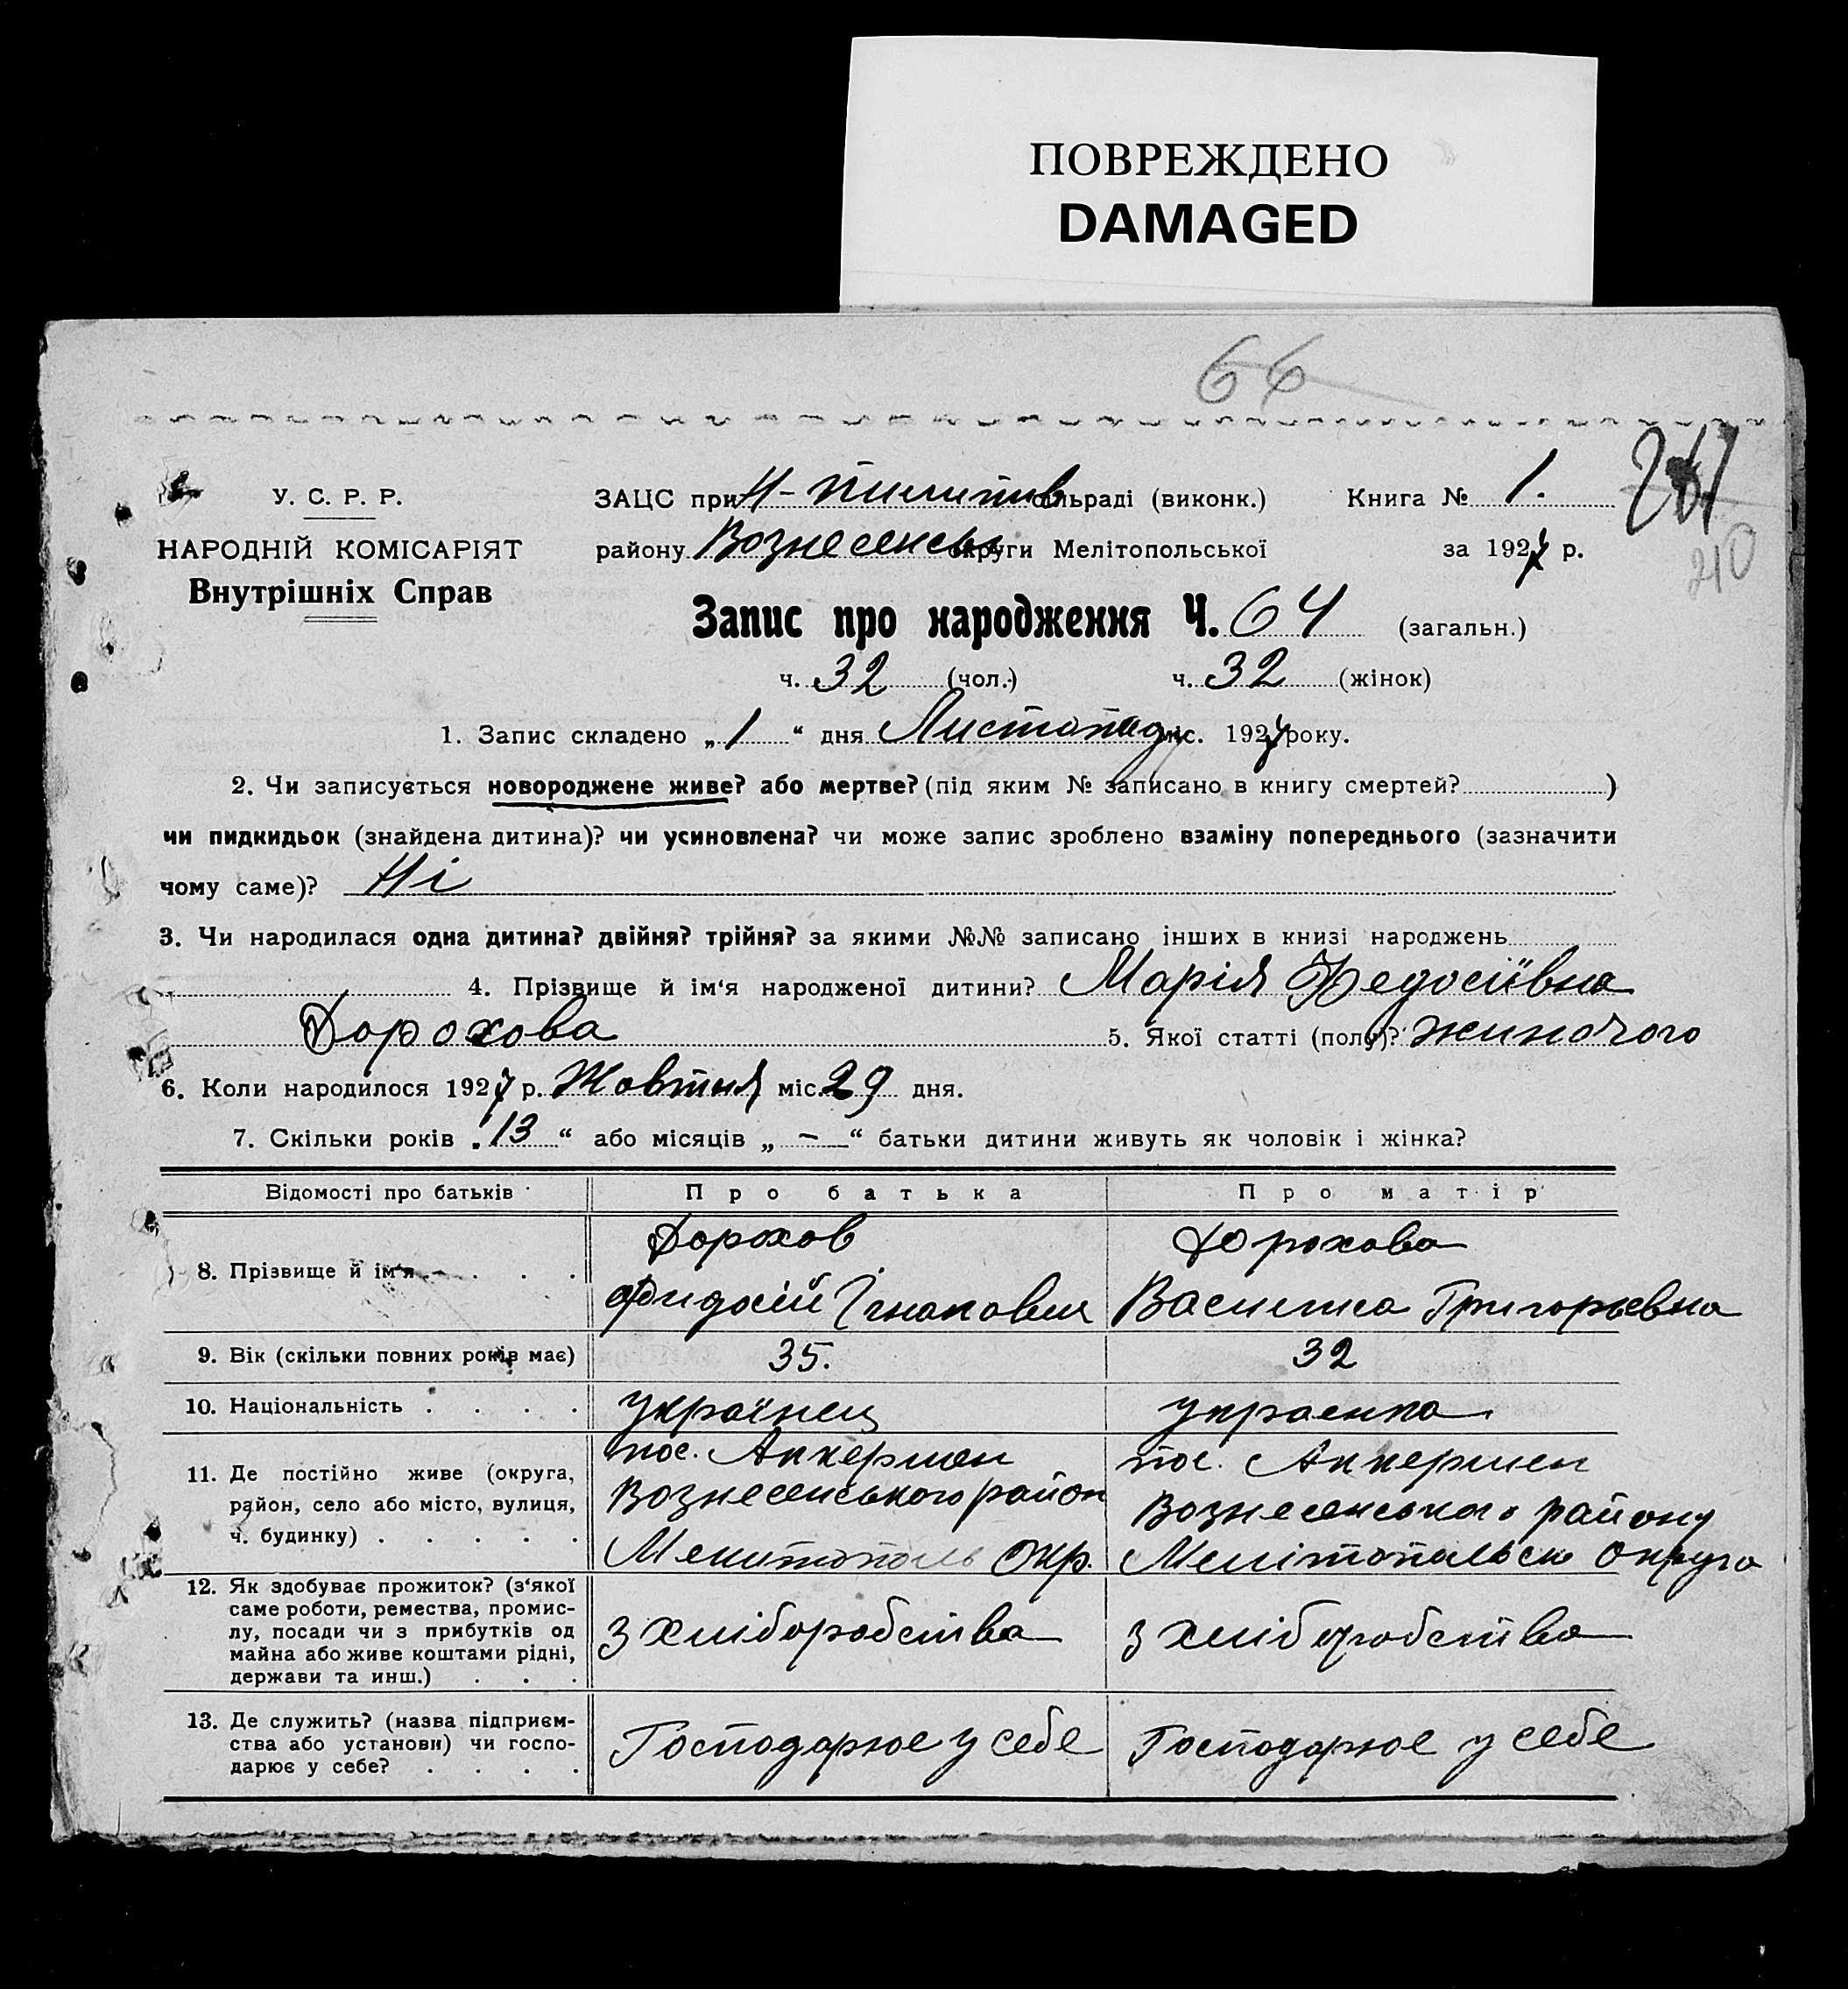 ПОВРЕЖДЕНО
DAMAGED
66
У. С. Р. Р.
ЗАЦС при Н-Пилипив сільраді (виконк.) Книга № 1.
261
НАРОДНІЙ КОМІСАРІЯТ
району Вознесенськ округи Мелітопольської за 1927 р.
210
Внутрішніх Справ
Запис про народження Ч. 64 (загальн.)
ч. 32 (чол.) ч. 32 (жінок)
1. Запис складено „ 1 “ дня Листопад міс. 1927 року.
2. Чи записується новороджене живе? або мертве? (під яким № записано в книгу смертей? )
чи пидкидьок (знайдена дитина)? чи усиновлена? чи може запис зроблено взаміну попереднього (зазначити
чому саме)? Ні
3. Чи народилася одна дитина? двійня? трійня? за якими №№ записано інших в книзі народжень
4. Прізвище й ім‘я народженої дитини? Марія Федосіївна
Дорохова 5. Якої статті (полу)? жиночого
6. Коли народилося 1927 р. Жовтня міс. 29 дня.
7. Скільки років „ 13 “ або місяців „ – “ батьки дитини живуть як чоловік і жінка?
Відомості про батьків Про батька Про матір
8. Прізвище й ім‘я . . . .
Дорохов
Фидосій Ігнатович
Дорохова
Василиса Григорьевна
9. Вік (скільки повних років має) 35. 32
10. Національність . . . . українец украенка
11. Де постійно живе (округа,
район, село або місто, вулиця,
ч. будинку) . . . . .
пос. Аккермен
Вознесенського район
Мелитополь Окр.
пос. Аккермен
Вознесенського району
Мелітопольск Округа
12. Як здобуває прожиток? (з‘якої
саме роботи, ремества, промис-
лу, посади чи з прибутків од
майна або живе коштами рідні,
держави та инш.) . . .
З хліборобства
З хліборобства
13. Де служить? (назва підприєм-
ства або установи) чи госпо-
дарює у себе? . . . .
Господарюе у себе
Господарюе у себе